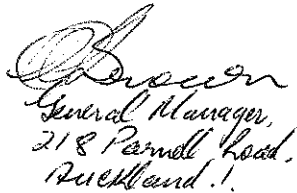 Brown
General Manager,
218 Parnell Road,
Auckland.!